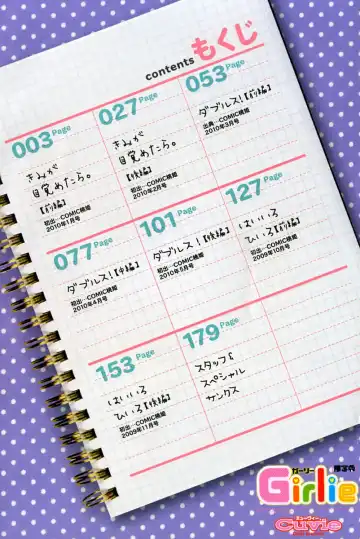 contents もくじ
003 Page
きみが
目覚めたら。
【前編】
初出…COMIC桃姫
2010年1月号
027 Page
きみが
目覚めたら。
【後編】
初出…COMIC桃姫
2010年2月号
053 Page
ダブルス!【前編】
出典…COMIC桃姫
2010年3月号
077 Page
ダブルス!【中編】
初出…COMIC桃姫
2010年4月号
101 Page
ダブルス!【後編】
初出…COMIC桃姫
2010年5月号
127 Page
はいいろ
ひいろ【前編】
初出…COMIC桃姫
2009年10月号
153 Page
はいいろ
ひいろ【後編】
初出…COMIC桃姫
2009年11月号
179 Page
スタッフ&
スペシャル
サンクス
ガーリー
Girlie
キューヴィー
Cuvie